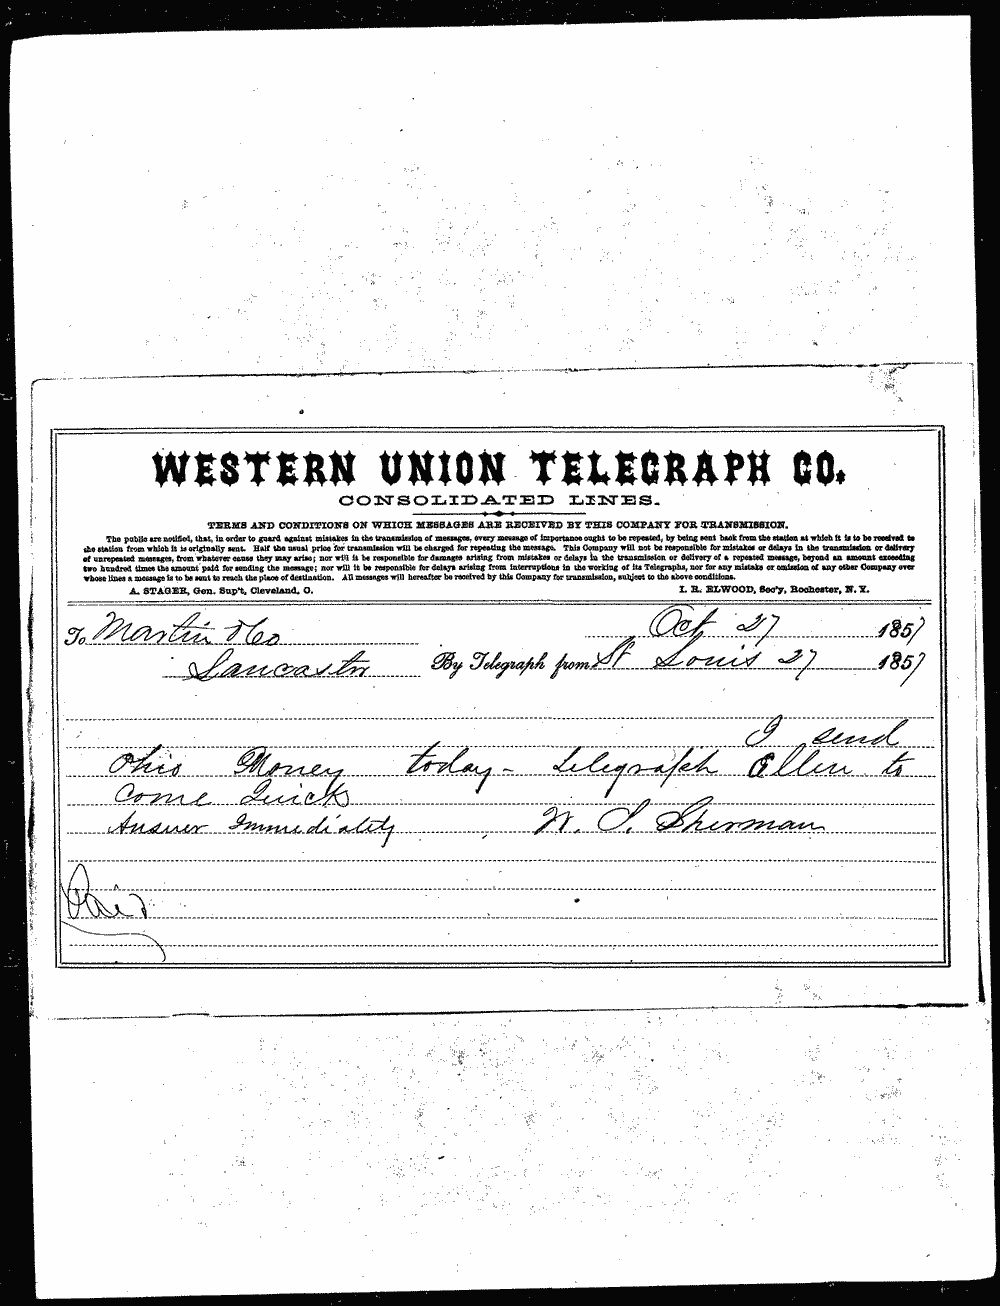 WESTERN UNION TELEGRAPH CO.
CONSOLIDATED LINES.
TERMS AND CONDITIONS ON WHICH MESSAGES ARE RECEIVED BY THIS COMPANY FOR TRANSMISSION.
The public are notified, that, in order to guard against mistakes in the transmission of messages, every message of importance ought to be repeated, by being sent back from the station at which it is to be received to
the station from which it is originally sent. Half the usual price for transmission will be charged for repeating the message. This Company will not be responsible for mistakes or delays in the transmission or delivery
of unrepeated messages, from whatever cause they may arise; nor will it be responsible for damages arising from mistakes or delays in the transmission or delivery of a repeated message, beyond an amount exceeding
two hundred times the amount paid for sending the message; nor will it be responsible for delays arising from interruptions in the working of its Telegraphs, nor for any mistake or omission of any other Company over
whose lines a message is to be sent to reach the place of destination. All messages will hereafter be received by this Company for transmission, subject to the above conditions.
A. STAGER, Gen. Sup't, Cleveland, O. I. R. ELWOOD, Sec'y, Rochester, N. Y.
To Martin & Co Oct 27 1857
Lancaster By Telegraph from St Louis 27 1857
I send
Ohio Money today - telegraph Ellen to
Come Quick
Answer Immediately W. S. Sherman
Paid